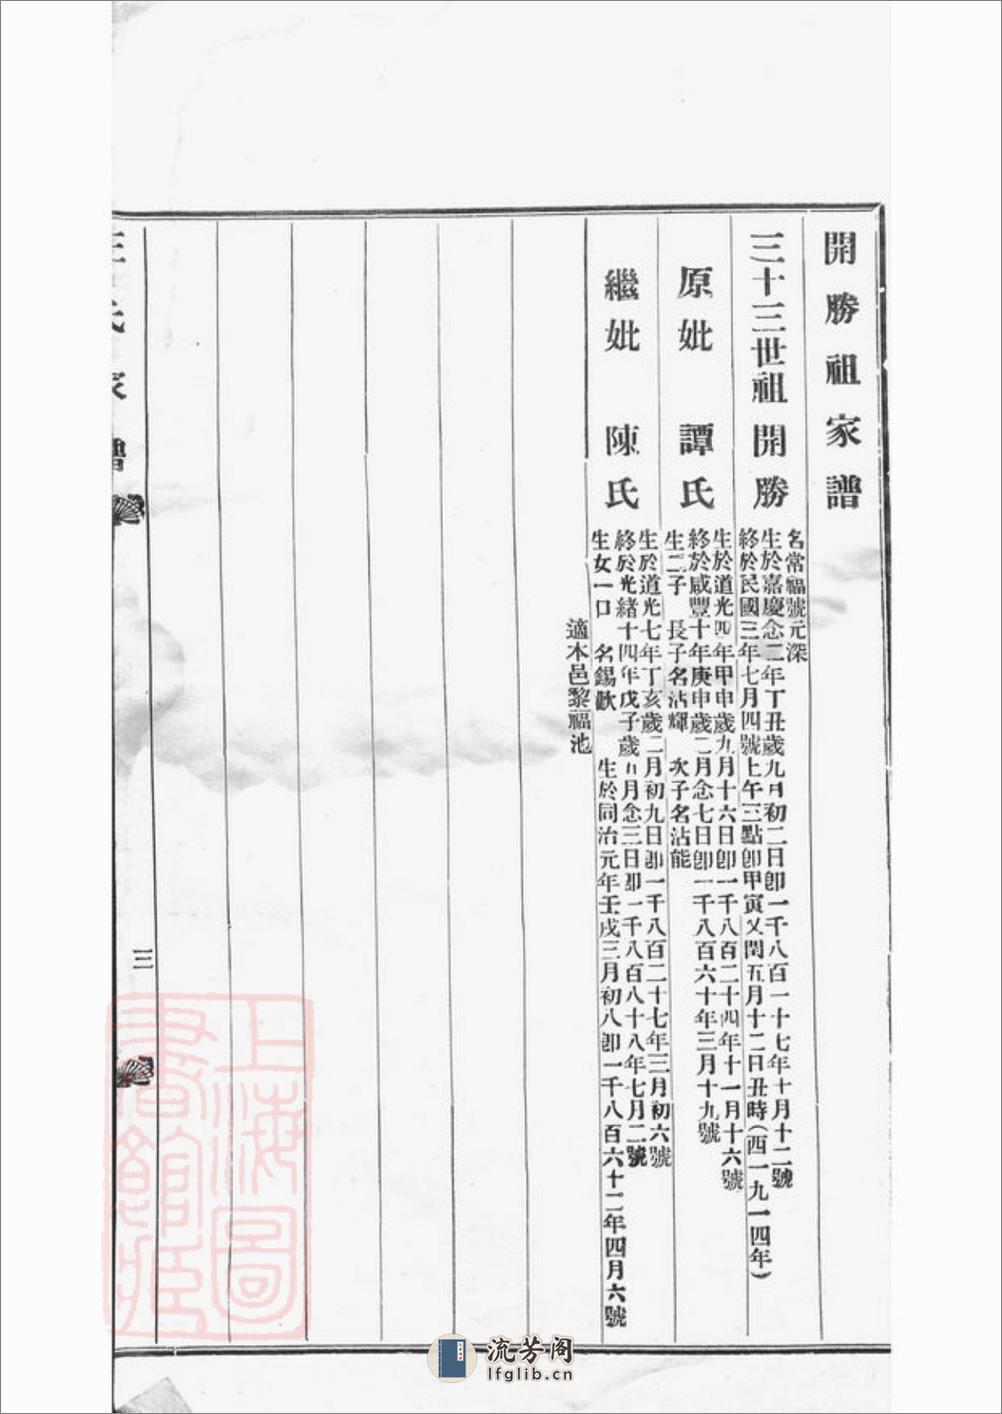 開勝祖家譜
三十三世祖開勝
名常福號元深
生於嘉慶念二年丁丑歲九月初二日卽一千八百一十七年十月十二號
終於民國三年七月四號上午三點卽甲寅又閏五月十二日丑時(西一九一四年)
原妣 譚氏
生於道光四年甲申歲九月十六日卽一千八百二十四年十一月十六號
終於咸豐十年庚申歲二月念七日卽一千八百六十年三月十九號
生二子 長子名沾輝 次子名沾能
繼妣 陳氏
生於道光七年丁亥歲二月初九日卽一千八百二十七年三月初六號
終於光緒十四年戊子歲五月念三日卽一千八百八十八年七月二號
生女一口 名錫歡 生於同治元年壬戌三月初八卽一千八百六十二年四月六號
適本邑黎福池
王氏家譜
三
上海圖書館藏
流芳阁
lfglib.cn